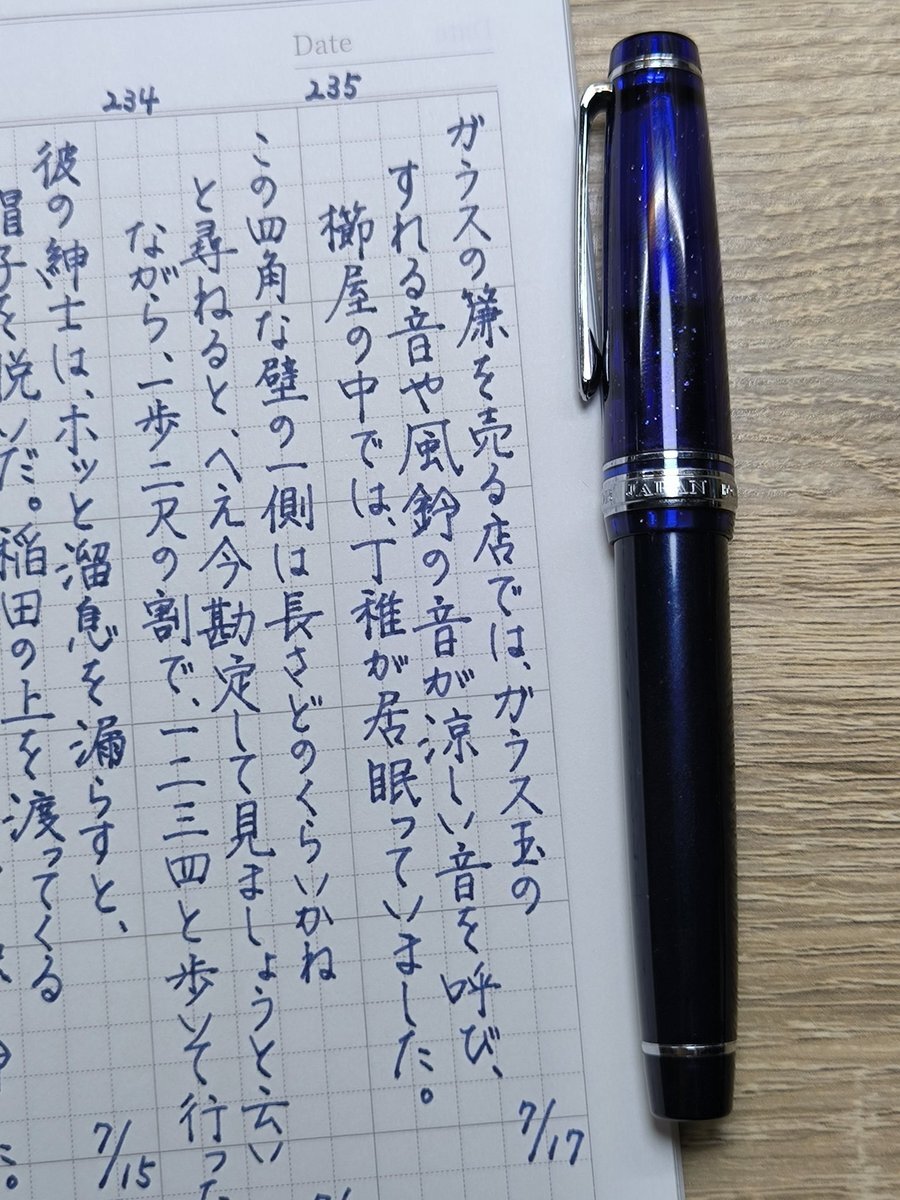 Date
235
ガラスの簾を売る店では、ガラス玉の
すれる音や風鈴の音が涼しい音を呼び、
櫛屋の中では、丁稚が居眠っていました。
7/17
234
この四角な壁の一側は長さどのくらいかね
と尋ねると、へえ今勘定して見ましょうと云い
ながら、一歩二尺の割で、一二三四と歩いて行った
彼の紳士は、ホッと溜息を漏らすと、
帽子を脱いだ。稲田の上を渡ってくる
7/15
JAPAN